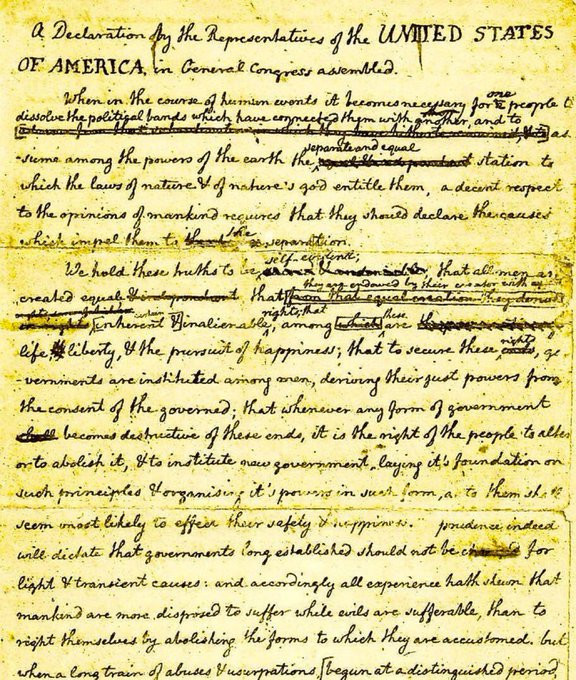 A Declaration by the Representatives of the UNITED STATES
OF AMERICA, in General Congress assembled.
When in the course of human events it becomes necessary for one people to
dissolve the political bands which have connected them with another, and to
as-
separate and equal
-sume among the powers of the earth the station to
which the laws of nature & of nature's god entitle them, a decent respect
to the opinions of mankind requires that they should declare the causes
which impel them to the separation.
self-evident;
We hold these truths to be that all men are
they are endowed by their creator with
created equal & independant, that from that equal creation they derive
rights; that these
inherent & inalienable, among which are
rights
life & liberty, & the pursuit of happiness; that to secure these ends, go-
-vernments are instituted among men, deriving their just powers from
the consent of the governed; that whenever any form of government
shall becomes destructive of these ends, it is the right of the people to alter
or to abolish it, & to institute new government, laying it's foundation on
such principles & organising it's powers in such form, as to them shall
seem most likely to effect their safety & happiness. prudence indeed
will dictate that governments long established should not be changed for
light & transient causes: and accordingly all experience hath shewn that
mankind are more disposed to suffer while evils are sufferable, than to
right themselves by abolishing the forms to which they are accustomed. but
when a long train of abuses & usurpations, [begun at a distinguished period,